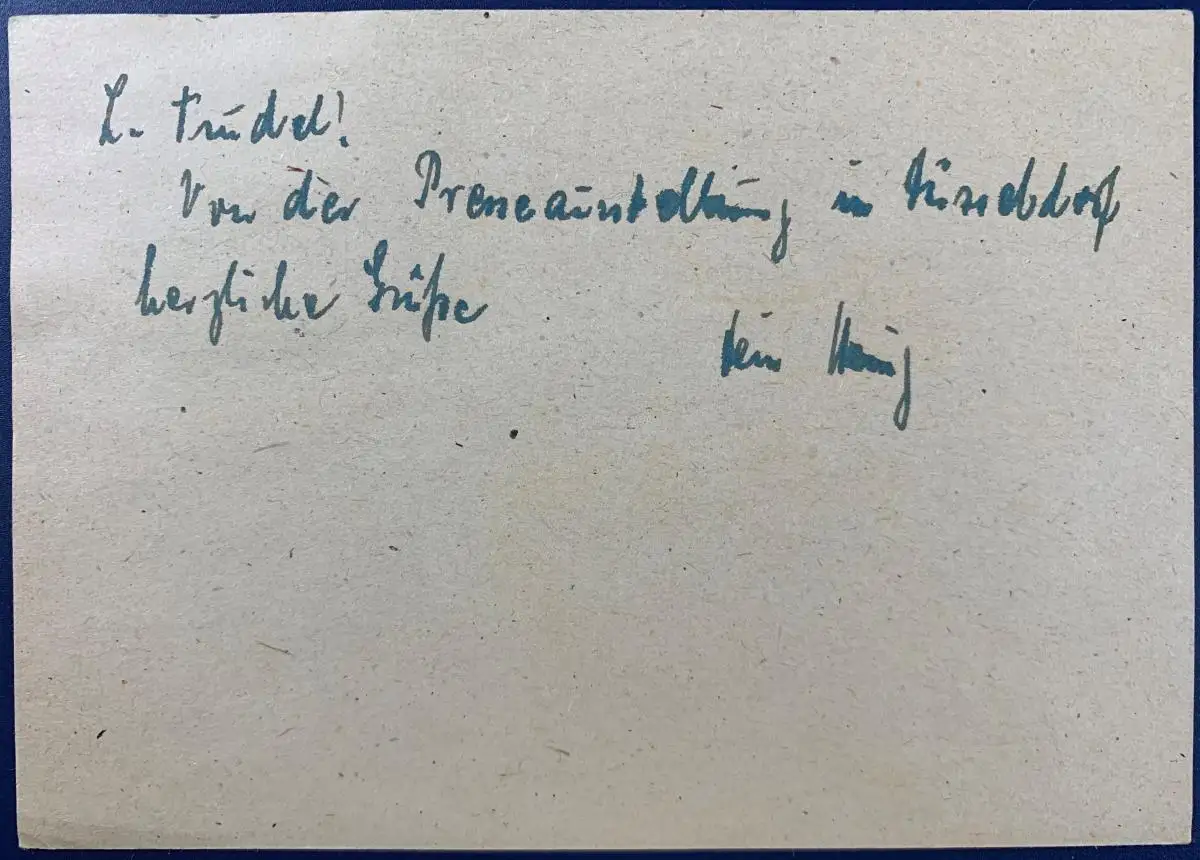 L. Trudel!
Von der Presseausstellung in Düsseldorf
herzliche Grüße
Dein